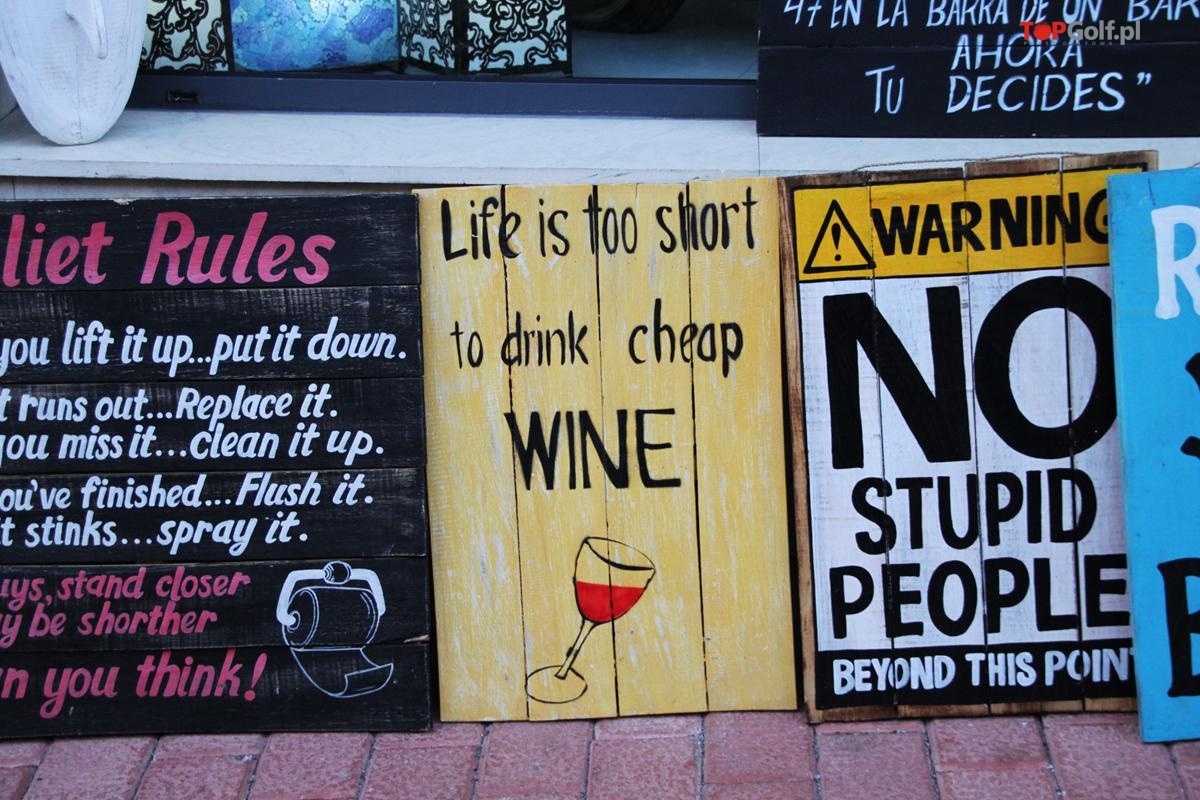 47 EN LA BARRA DE UN BAR
AHORA
TU DECIDES”
TOPGolf.pl
liet Rules
you lift it up...put it down.
t runs out...Replace it.
you miss it...clean it up.
ou've finished...Flush it.
it stinks...spray it.
uys, stand closer
ay be shorther
n you think!
Life is too short
to drink cheap
WINE
WARNING
NO
STUPID
PEOPLE
BEYOND THIS POINT
R
B